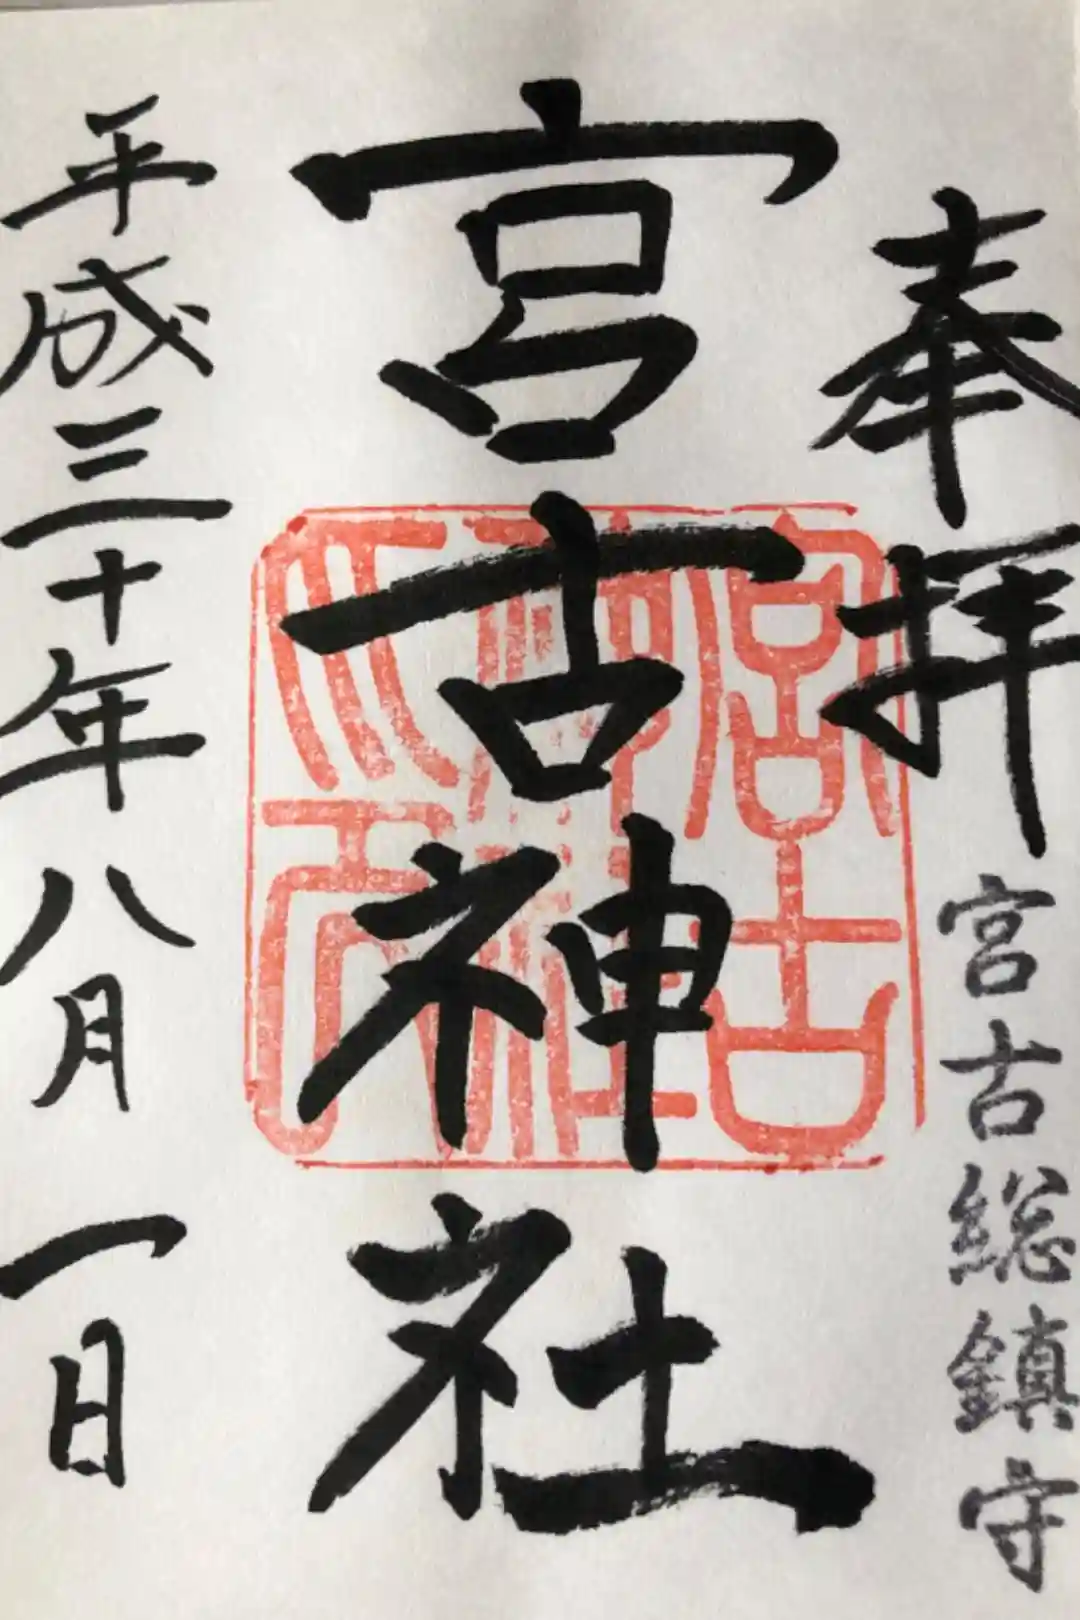 奉拝
宮古総鎮守
宮古神社
宮古神社之印
平成三十年八月一日